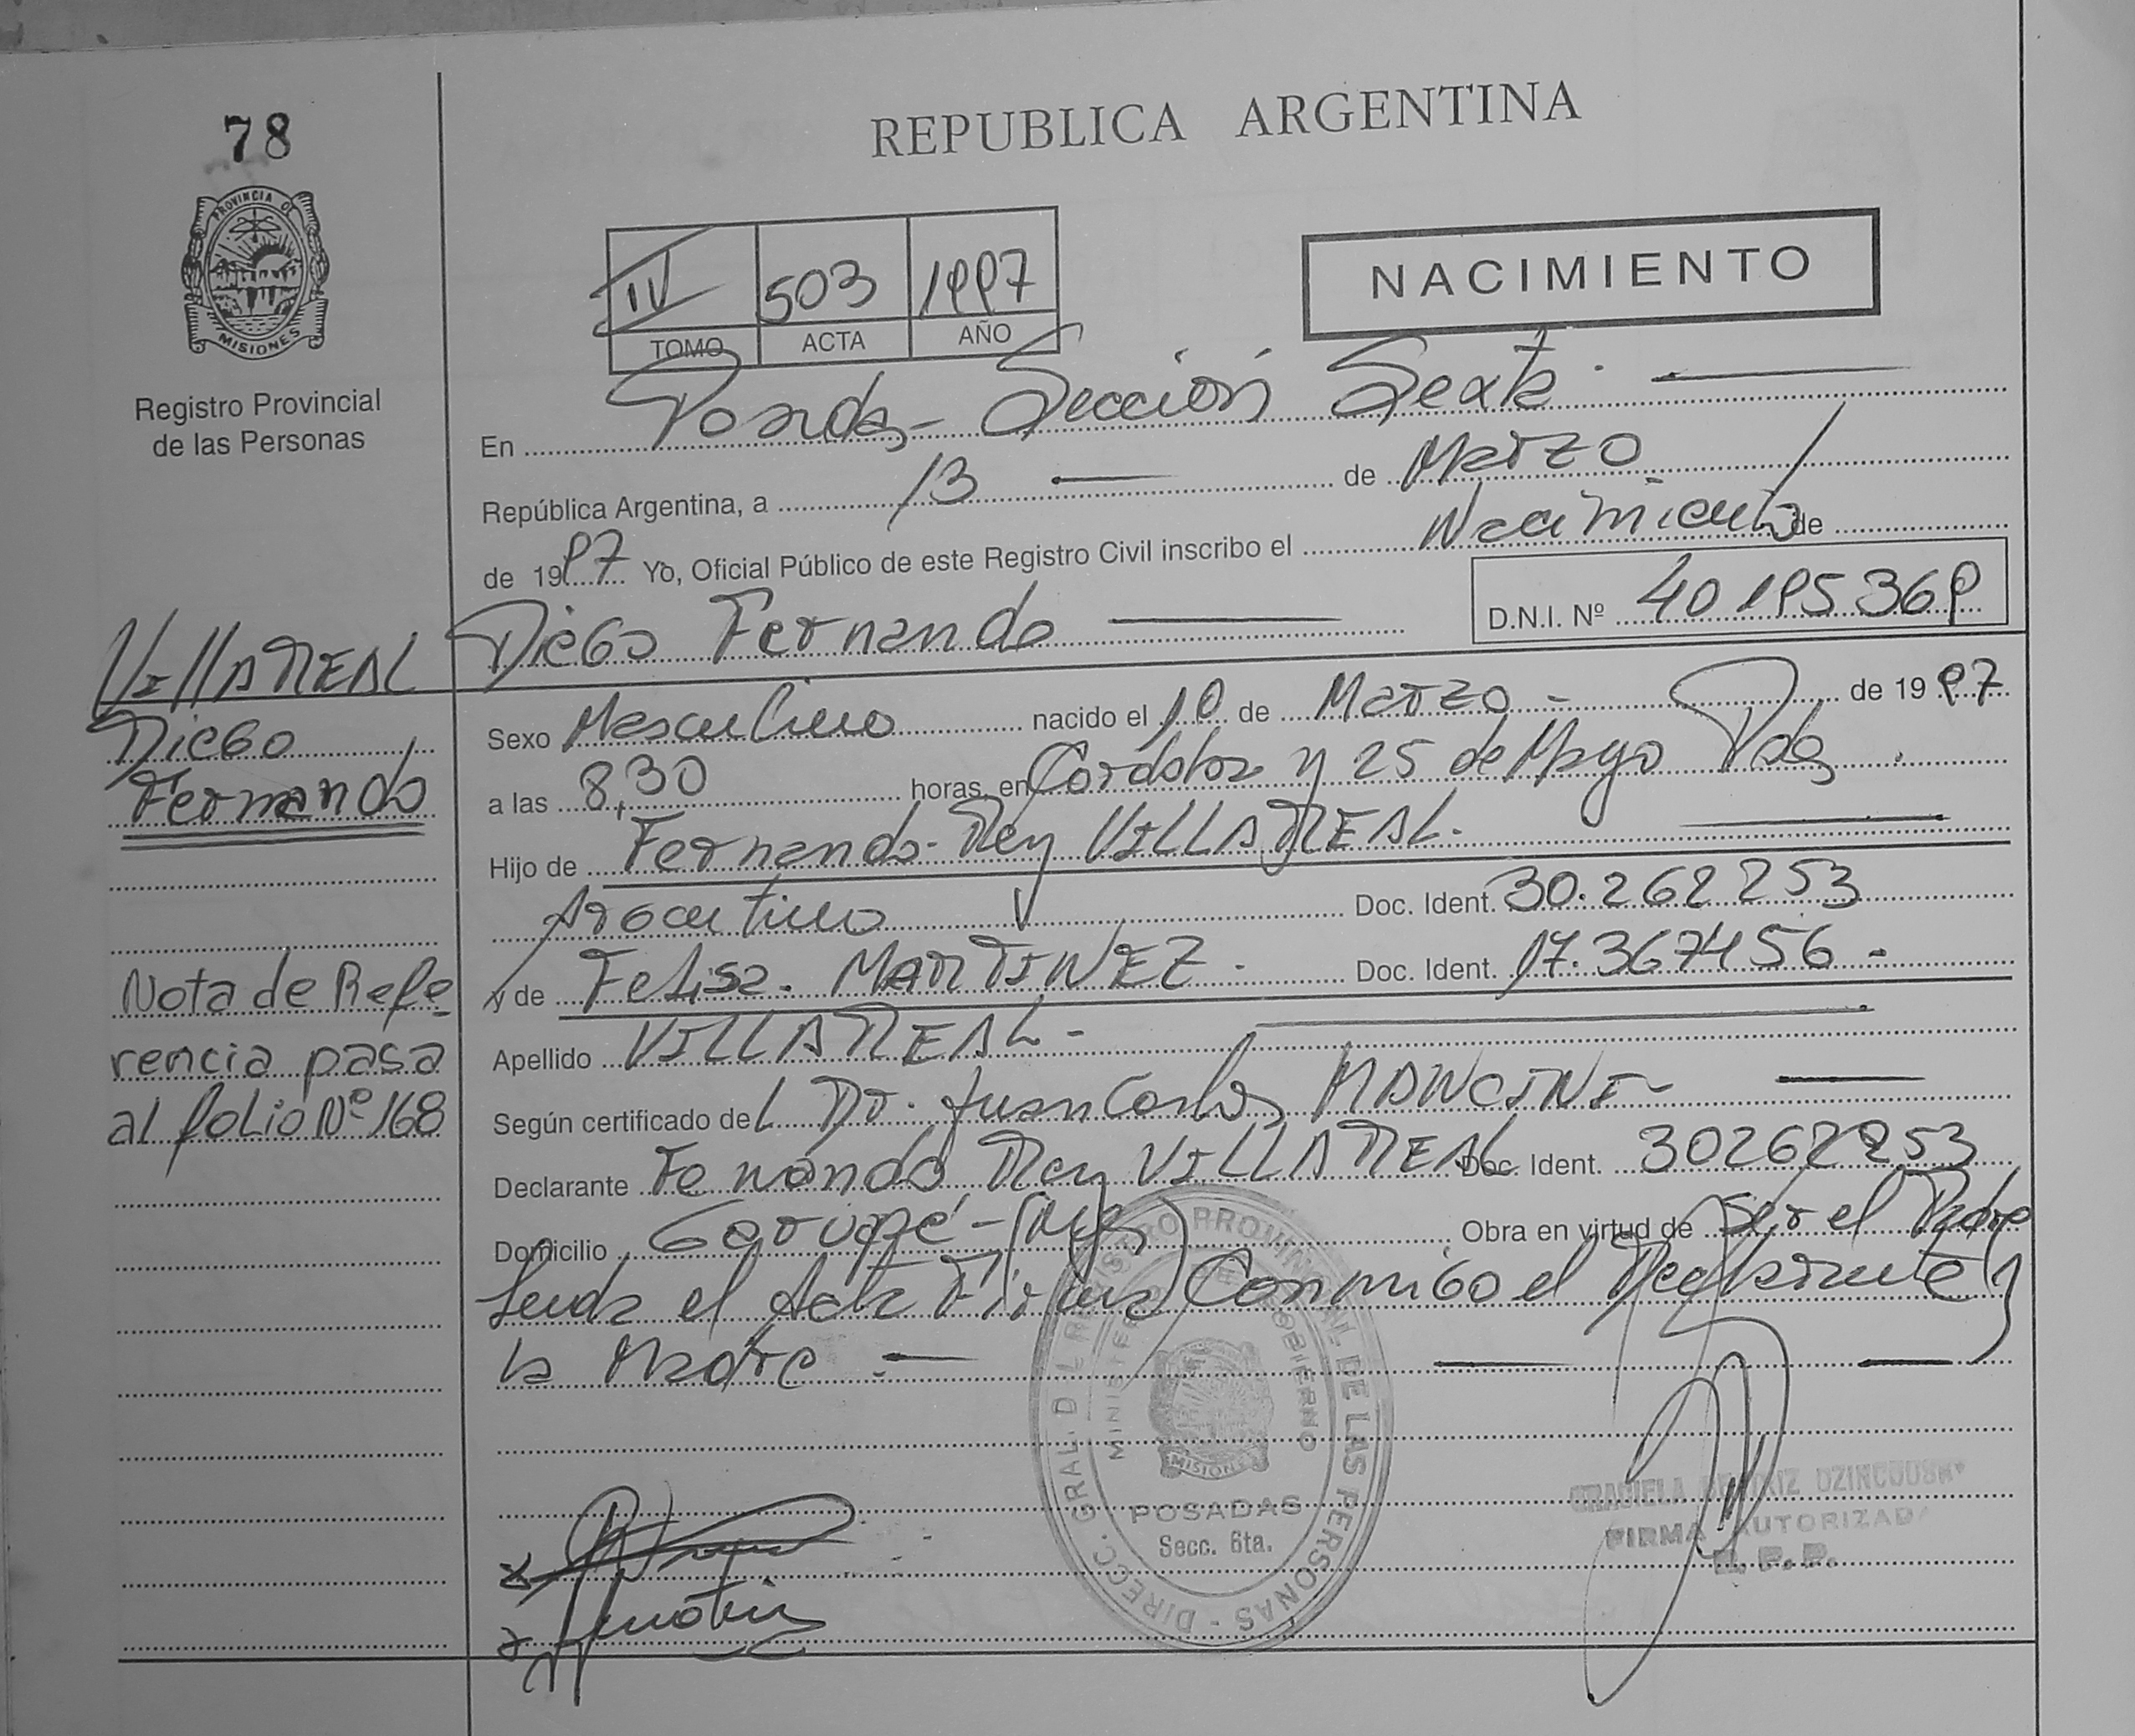 78
PROVINCIA DE
MISIONES
Registro Provincial
de las Personas
REPUBLICA ARGENTINA
IV 503 1997
TOMO ACTA AÑO
NACIMIENTO
En Posadas - Sección Sexta.
República Argentina, a 13 de Marzo
de 1997 Yo, Oficial Público de este Registro Civil inscribo el Nacimiento de
Diego Fernando D.N.I. Nº 40195369
VILLARREAL
Diego
Fernando
Sexo Masculino nacido el 10 de Marzo - de 1997
a las 8,30 horas, en Córdoba y 25 de Mayo Pdas.
Hijo de Fernando Rey VILLARREAL.
Argentino Doc. Ident. 30.262253
y de Felisa. MARTINEZ. Doc. Ident. 17.367456 -
Apellido VILLARREAL -
Según certificado del Dr. Juan Carlos MANCINI -
Declarante Fernando Rey VILLARREAL Doc. Ident. 30262253
Domicilio Garupé - Obra en virtud de ser el Padre
Leída el Acta Firma Conmigo el y
la Madre -
Nota de Refe
rencia pasa
al folio Nº 168
DIRECC. GRAL. DEL REGISTRO PROVINCIAL DE LAS PERSONAS -
MINISTERIO DE GOBIERNO
MISIONES
POSADAS
Secc. 6ta.
FIRMA AUTORIZADA